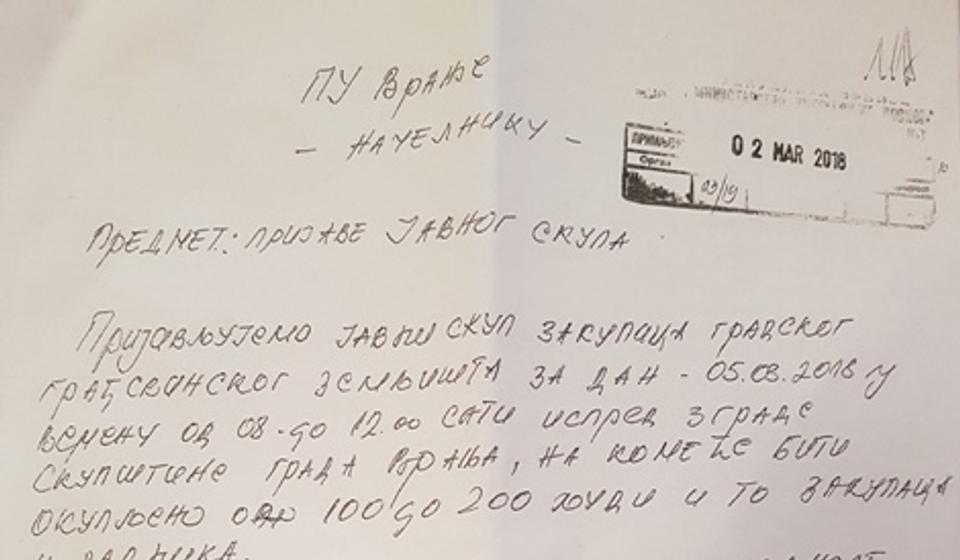 ПУ Врање
- НАЧЕЛНИКУ -
02 MAR 2018
09/19
ПРЕДМЕТ: ПРИЈАВЕ ЈАВНОГ СКУПА
Пријављујемо ЈАВНИ СКУП ЗАКУПАЦА ГРАДСКОГ
ГРАЂЕВИНСКОГ ЗЕМЉИШТА ЗА ДАН - 05.03.2018 у
ВЕМЕНУ ОД 08-до 12.00 САТИ испред ЗГРАДЕ
СКУПШТИНЕ ГРАДА ВРАЊА, НА КОМЕ ЋЕ БИТИ
ОКУПЉЕНО 100 до 200 људи и ТО ЗАКУПАЦА